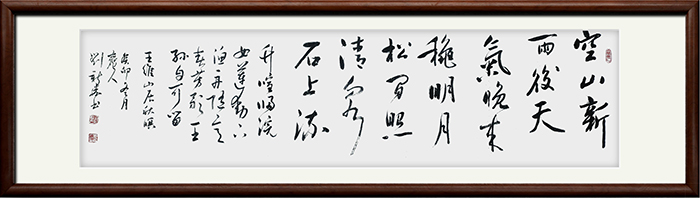 空山新
雨後天
氣晚来
穐明月
松間照
清泉
石上流
竹喧歸浣
女蓮動下
渔舟随意
春芳歇王
孫自可留
王维山居秋暝
癸卯冬月
劉